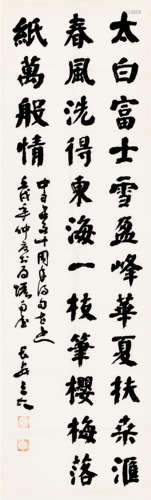 太白富士雪盈峰華夏扶桑滙
春風洗得東海一枝筆櫻梅落
紙萬般情
中日建交十周年得句書之
壬戌年仲
長安